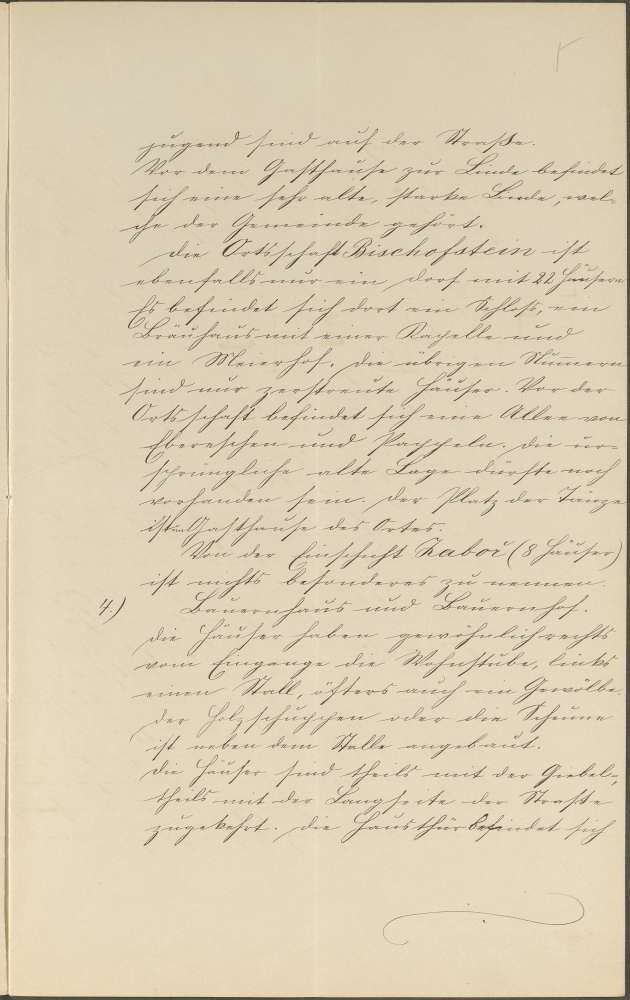 jugend sind auf der Straße.
Vor dem Gasthause zur Linde befindet
sich eine sehr alte, starke Linde, wel-
che der Gemeinde gehört.
Die Ortsschaft Bischofstein ist
ebenfalls nur ein Dorf mit 22 Häusern
Es befindet sich dort ein Schloß, ein
Bräuhaus mit einer Kapelle und
ein Meierhof. Die übrigen Nummern
sind nur zerstreute Häuser. Vor der
Ortsschaft befindet sich eine Allee von
Ebereschen und Pappeln. Die ur-
sprüngliche alte Lage dürfte noch
vorhanden sein. Der Platz der Tänze
ist im Gasthause des Ortes.
Von der Einschicht Zaboř (8 Häuser)
ist nichts besonderes zu nennen.
4.) Bauernhaus und Bauernhof.
Die Häuser haben gewöhnlich rechts
vom Eingange die Wohnstube, links
einen Stall, öfters auch ein Gewölbe.
Der Holzschuppen oder die Scheune
ist neben dem Stalle angebaut.
Die Häuser sind theils mit der Giebel-,
theils mit der Langseite der Straße
zugekehrt. Die Hausthür befindet sich